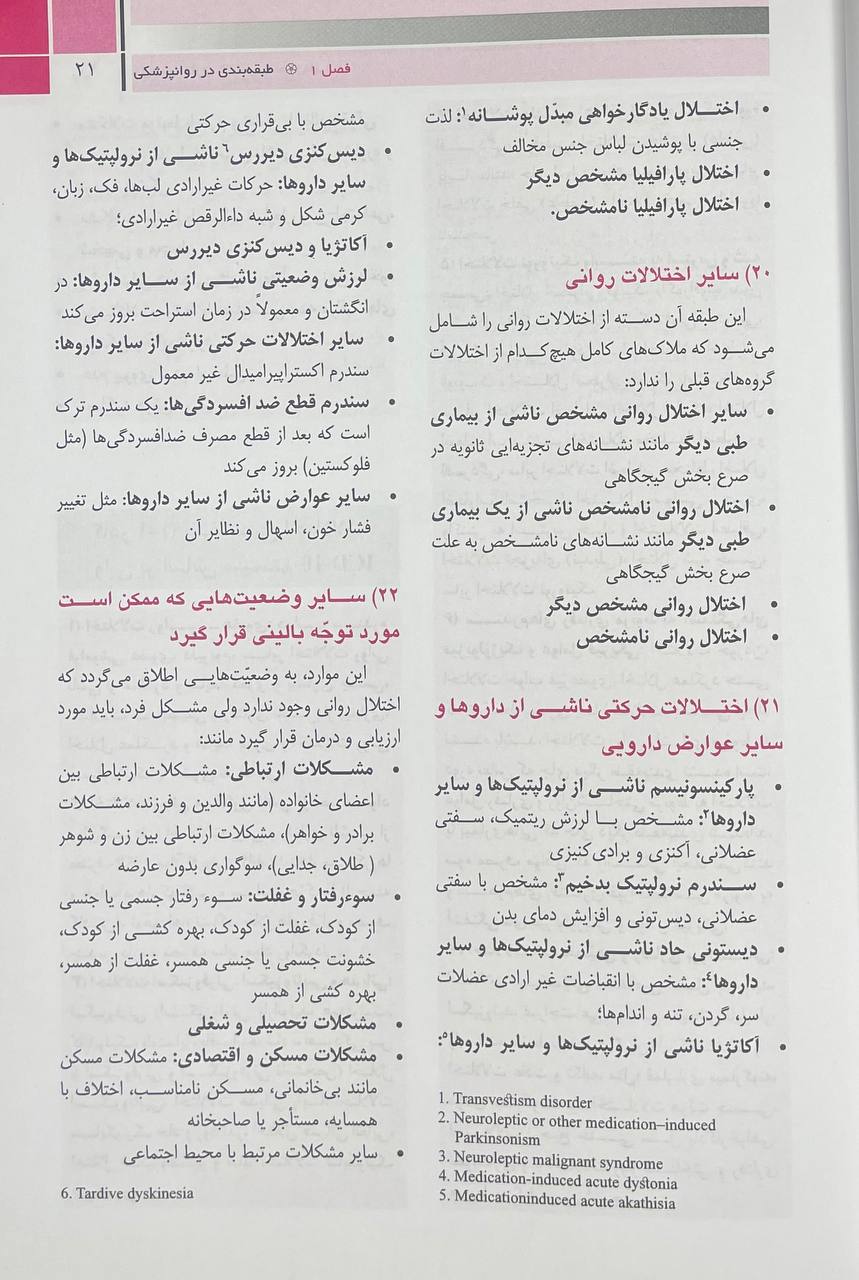 فصل ۱ طبقه‌بندی در روانپزشکی ۲۱
• اختلال یادگارخواهی مبدّل پوشانه۱: لذت
جنسی با پوشیدن لباس جنس مخالف
• اختلال پارافیلیا مشخص دیگر
• اختلال پارافیلیا نامشخص.
۲۰) سایر اختلالات روانی
این طبقه آن دسته از اختلالات روانی را شامل
می‌شود که ملاک‌های کامل هیچ‌کدام از اختلالات
گروه‌های قبلی را ندارد:
• سایر اختلال روانی مشخص ناشی از بیماری
طبی دیگر مانند نشانه‌های تجزیه‌ایی ثانویه در
صرع بخش گیجگاهی
• اختلال روانی نامشخص ناشی از یک بیماری
طبی دیگر مانند نشانه‌های نامشخص به علت
صرع بخش گیجگاهی
• اختلال روانی مشخص دیگر
• اختلال روانی نامشخص
۲۱) اختلالات حرکتی ناشی از داروها و
سایر عوارض دارویی
• پارکینسونیسم ناشی از نرولپتیک‌ها و سایر
داروها۲: مشخص با لرزش ریتمیک، سفتی
عضلانی، آکنزی و برادی‌کنیزی
• سندرم نرولپتیک بدخیم۳: مشخص با سفتی
عضلانی، دیس‌تونی و افزایش دمای بدن
• دیستونی حاد ناشی از نرولپتیک‌ها و سایر
داروها۴: مشخص با انقباضات غیر ارادی عضلات
سر، گردن، تنه و اندام‌ها؛
• آکاتژیا ناشی از نرولپتیک‌ها و سایر داروها۵:
1. Transvestism disorder
2. Neuroleptic or other medication–induced
Parkinsonism
3. Neuroleptic malignant syndrome
4. Medication-induced acute dystonia
5. Medicationinduced acute akathisia
مشخص با بی‌قراری حرکتی
• دیس‌کنزی دیررس۶ ناشی از نرولپتیک‌ها و
سایر داروها: حرکات غیرارادی لب‌ها، فک، زبان،
کرمی شکل و شبه داءالرقص غیرارادی؛
• آکاتژیا و دیس‌کنزی دیررس
• لرزش وضعیتی ناشی از سایر داروها: در
انگشتان و معمولاً در زمان استراحت بروز می‌کند
• سایر اختلالات حرکتی ناشی از سایر داروها:
سندرم اکستراپیرامیدال غیر معمول
• سندرم قطع ضد افسردگی‌ها: یک سندرم ترک
است که بعد از قطع مصرف ضدافسردگی‌ها (مثل
فلوکستین) بروز می‌کند
• سایر عوارض ناشی از سایر داروها: مثل تغییر
فشار خون، اسهال و نظایر آن
۲۲) سایر وضعیت‌هایی که ممکن است
مورد توجّه بالینی قرار گیرد
این موارد، به وضعیّت‌هایی اطلاق می‌گردد که
اختلال روانی وجود ندارد ولی مشکل فرد، باید مورد
ارزیابی و درمان قرار گیرد مانند:
• مشکلات ارتباطی: مشکلات ارتباطی بین
اعضای خانواده (مانند والدین و فرزند، مشکلات
برادر و خواهر)، مشکلات ارتباطی بین زن و شوهر
( طلاق، جدایی)، سوگواری بدون عارضه
• سوءرفتار و غفلت: سوء رفتار جسمی یا جنسی
از کودک، غفلت از کودک، بهره کشی از کودک،
خشونت جسمی یا جنسی همسر، غفلت از همسر،
بهره کشی از همسر
• مشکلات تحصیلی و شغلی
• مشکلات مسکن و اقتصادی: مشکلات مسکن
مانند بی‌خانمانی، مسکن نامناسب، اختلاف با
همسایه، مستأجر یا صاحبخانه
• سایر مشکلات مرتبط با محیط اجتماعی
6. Tardive dyskinesia